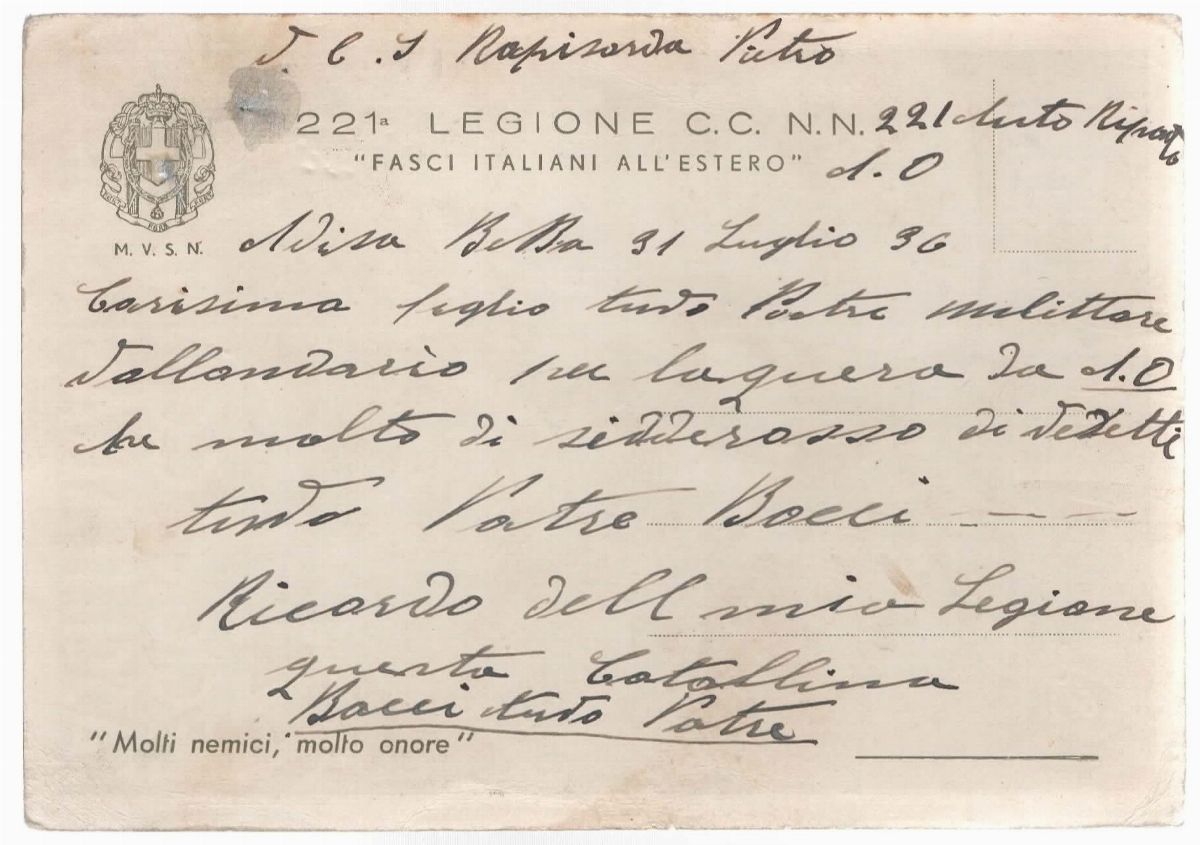 D. C. S Rapisarda Pietro
221ª LEGIONE C.C. N.N. 221 Auto Riparto
"FASCI ITALIANI ALL'ESTERO" A.O
FERT FERT FERT
M. V. S. N.
Adisa BeBa 31 Luglio 36
Carisima figlio tudo Patre melittare
vallondario per la quera da A.O
che molto di sidderosso di vedetti
tudo Patre Bacci — — —
Ricordo dell mia Legione
questa Catollina
Bacci tudo Patre
"Molti nemici, molto onore"